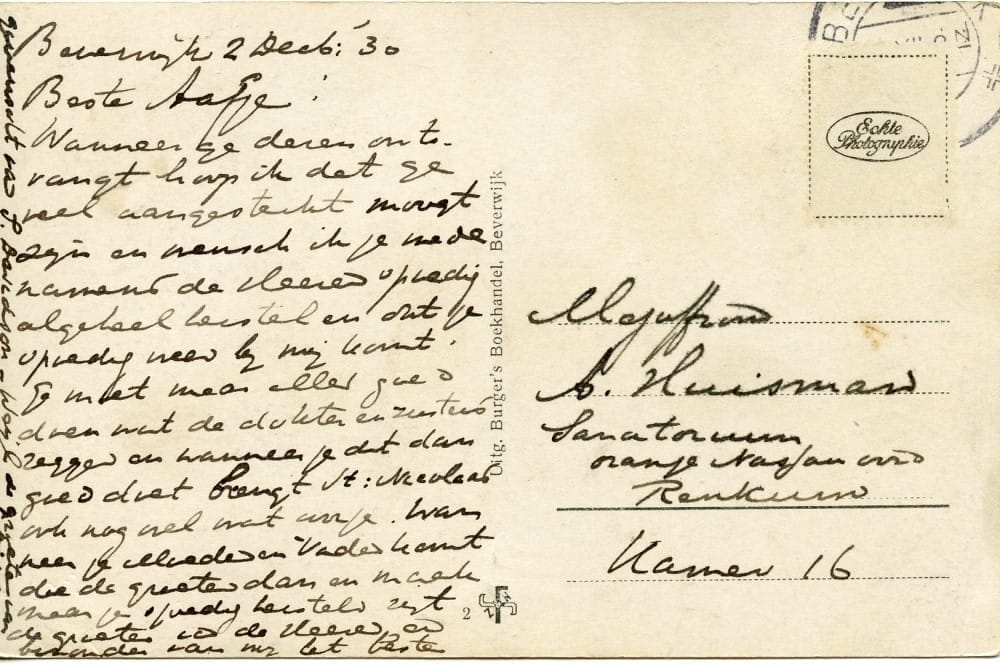 Beverwijk 2 Decb: '30
Beste Aafje!
Wanneer ge dezen ont-
vangt hoop ik dat ge
veel aangesterkt moogt
zijn en wensch ik je mede
namens de Heeren spoedig
algeheel herstel en dat je
spoedig weer by mij komt.
Ge moet maar alles goed
doen wat de dokter en zusters
zeggen en wanneer je dit dan
goed doet brengt St: Nicolaas
ook nog wel wat voor je. Wan
neer je Moeder en Vader komt
doe de groeten dan en maak
maar je spoedig hersteld zijt
de groeten van de Heeren en
bizonder van my het beste
gewenscht van P. Davidson
de groeten van
Echte
Photographie
Uitg. Burger's Boekhandel, Beverwijk
2
Mejuffrouw
A. Huisman
Sanatorium
Oranje Nassau oord
Renkum
Kamer 16